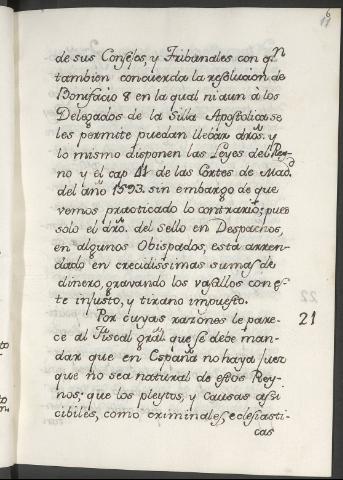 6
11
de sus Consejos, y Tribunales con qn
tambien concuerda la resolucion de
Bonifacio 8 en la qual ni aun à los
Delegados de la Silla Apostolica se
les permite puedan llebar dros. y
lo mismo disponen las Leyes del Rey-
no y el cap 41 de las Cortes de Mad.
del año 1593. sin embargo de que
vemos practicado lo contrario; pues
solo el dro. del sello en Despachos,
en algunos Obispados, està arren-
dado en crecidissimas sumas de
dinero, gravando los vasallos con es-
te injusto, y tirano impuesto.
Por cuyas razones le pare- 21
ce al Fiscal gral. que se debe man-
dar que en España no haya Juez
que no sea natural de estos Rey-
nos; que los pleytos, y causas assi
cibiles, como criminales, eclesiasti-
cas